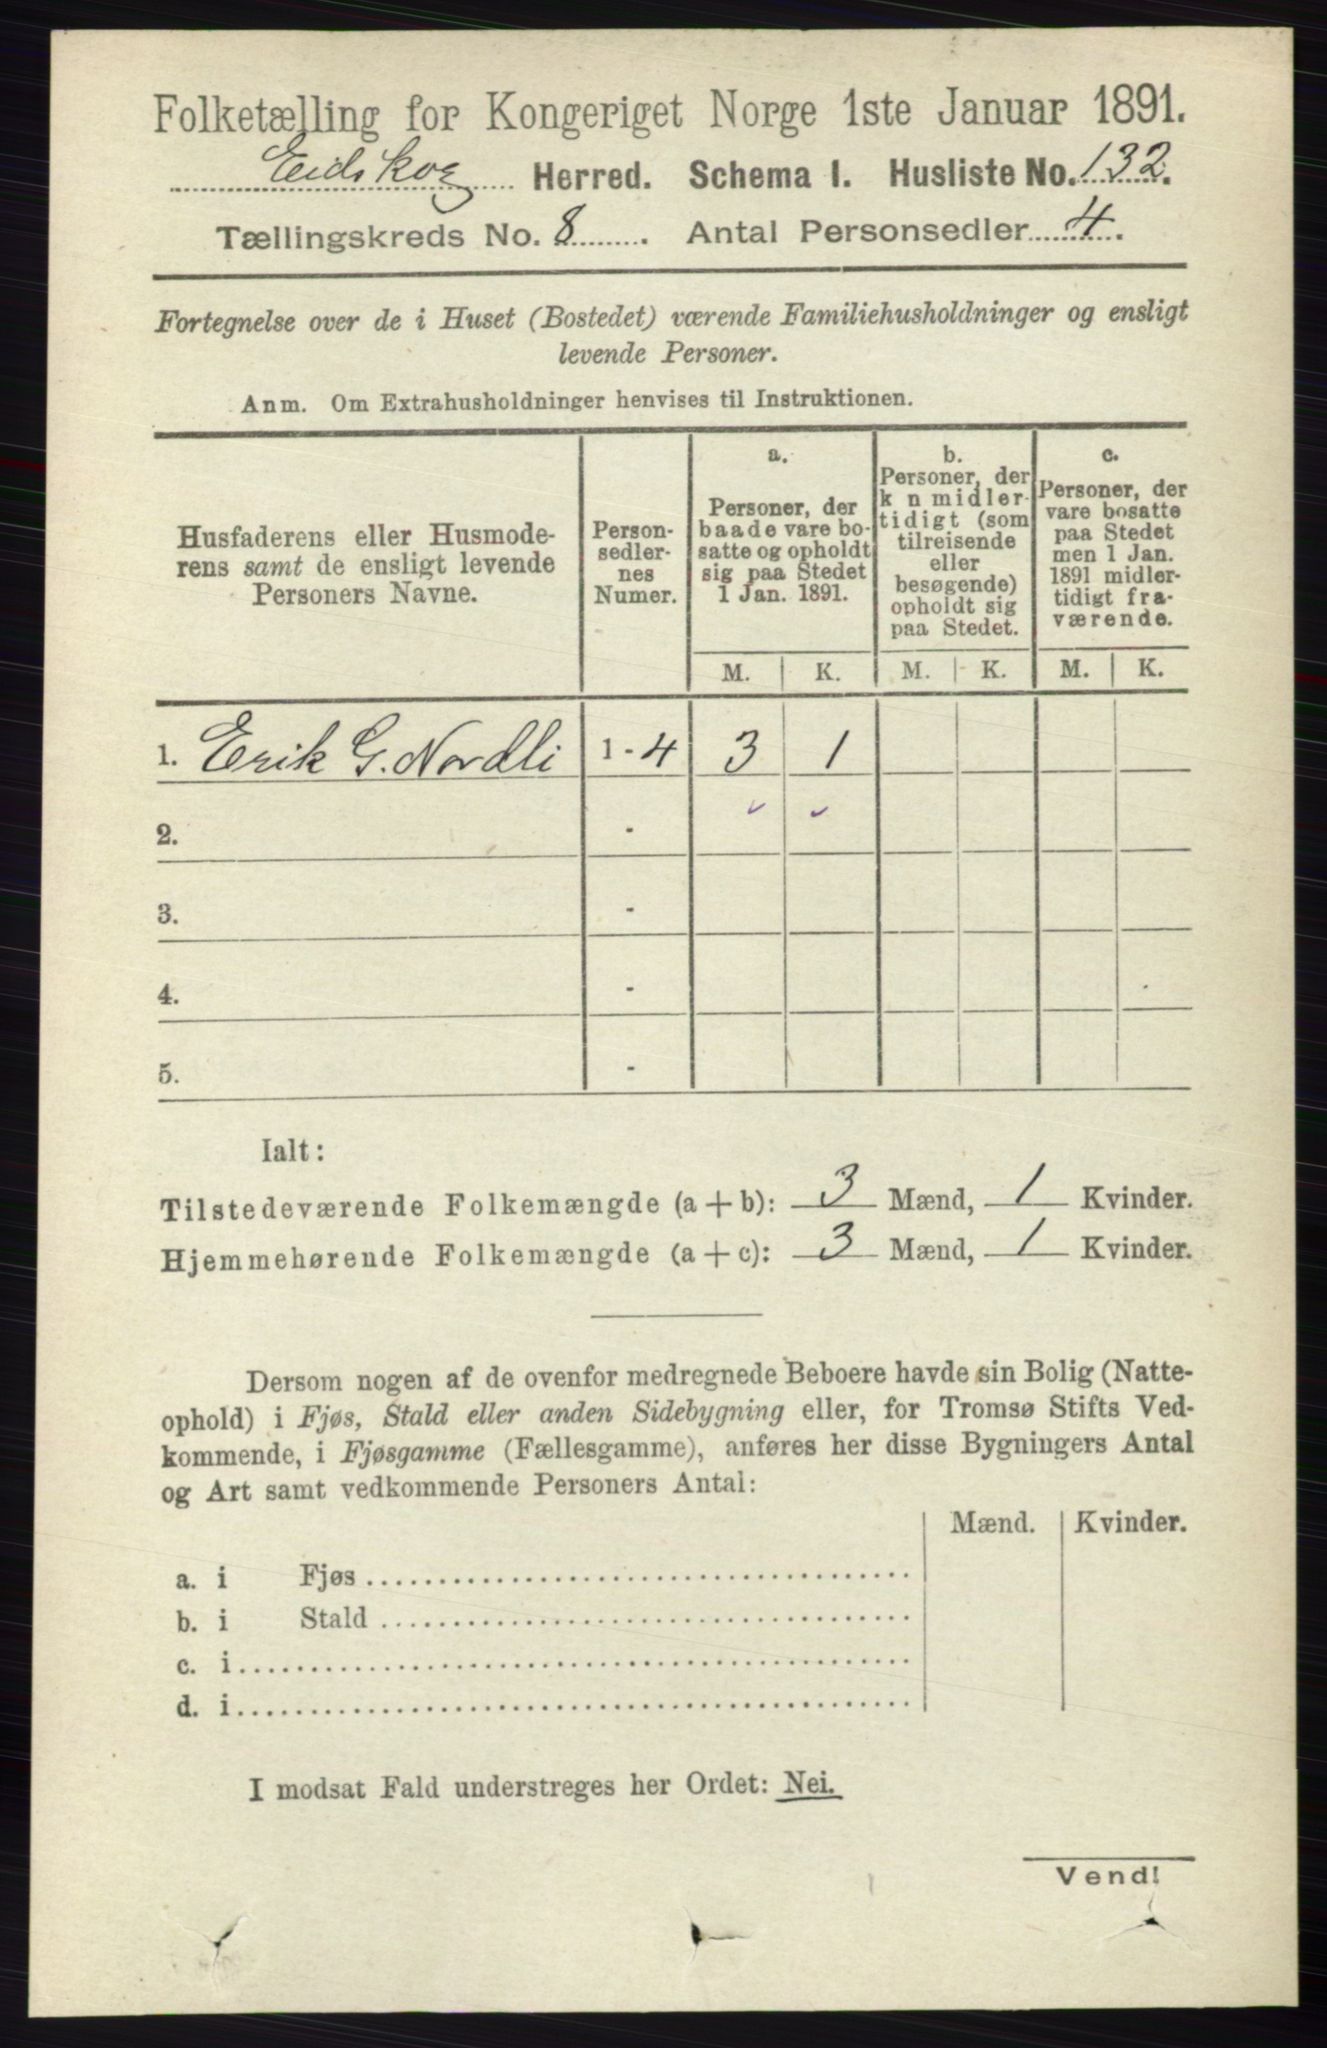 Folketælling for Kongeriget Norge 1ste Januar 1891.
Eidskog Herred. Schema I. Husliste No. 132.
Tællingskreds No. 8. Antal Personsedler 4.
Fortegnelse over de i Huset (Bostedet) værende Familiehusholdninger og ensligt
levende Personer.
Anm. Om Extrahusholdninger henvises til Instruktionen.
Husfaderens eller Husmode-
rens samt de ensligt levende
Personers Navne.
Person-
sedler-
nes
Numer.
a.
Personer, der
baade vare bo-
satte og opholdt
sig paa Stedet
1 Jan. 1891.
b.
Personer, der
k n midler-
tidigt (som
tilreisende
eller
besøgende)
opholdt sig
paa Stedet.
c.
Personer, der
vare bosatte
paa Stedet
men 1 Jan.
1891 midler-
tidigt fra-
værende.
M. K. M. K. M. K.
1. Erik G. Nordli 1 - 4 3 1
2. -
3. -
4. -
5. -
Ialt:
Tilstedeværende Folkemængde (a + b): 3 Mænd, 1 Kvinder.
Hjemmehørende Folkemængde (a + c): 3 Mænd, 1 Kvinder.
Dersom nogen af de ovenfor medregnede Beboere havde sin Bolig (Natte-
ophold) i Fjøs, Stald eller anden Sidebygning eller, for Tromsø Stifts Ved-
kommende, i Fjøsgamme (Fællesgamme), anføres her disse Bygningers Antal
og Art samt vedkommende Personers Antal:
Mænd. Kvinder.
a. i Fjøs
b. i Stald
c. i
d. i
I modsat Fald understreges her Ordet: Nei.
Vend!